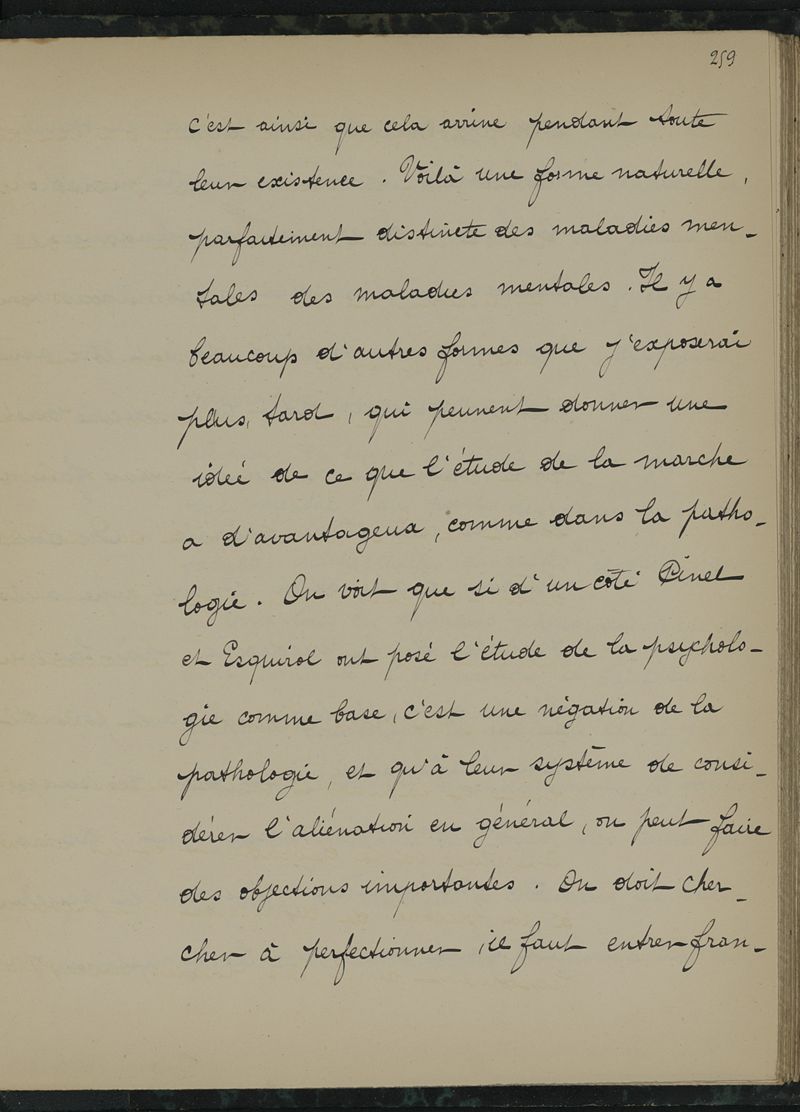 259
c'est ainsi que cela arrive pendant toute
leur existence. Voilà une forme naturelle,
parfaitement distincte des maladies men-
tales des maladies mentales. Il y a
beaucoup d'autres formes que j'exposerai
plus, tard, qui peuvent donner une
idée de ce que l'étude de la marche
a d'avantageux, comme dans la patho-
logie. On voit que si d'un côté Pinel
et Esquirol ont posé l'étude de la psycholo-
gie comme base, c'est une négation de la
pathologie, et qu'à leur système de consi-
dérer l'aliénation en général, on peut faire
des objections importantes. On doit cher-
cher à perfectionner, il faut entrer fran-